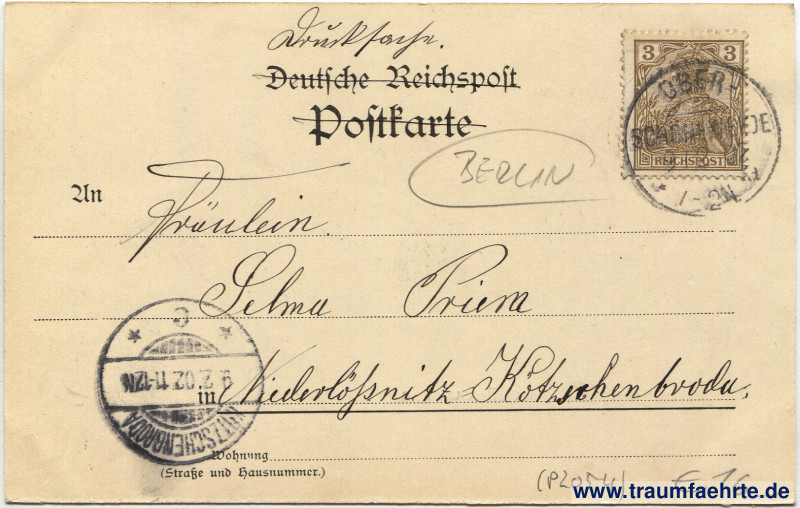 Drucksache.
3 3
Deutsche Reichspost
REICHSPOST
Postkarte
OBER-
SCHÖNEWEIDE
1-2N
BERLIN
An Fräulein.
Selma Priem
C
9.2.02.11-12N
KÖTZSCHENBRODA
in Niederlößnitz-Kötzschenbroda.
Wohnung
(Straße und Hausnummer.)
www.traumfaehrte.de